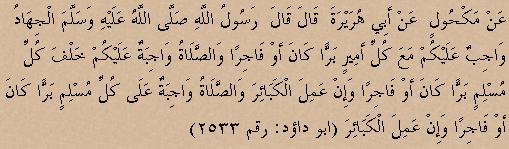 عَنْ مَكْحُولٍ عَنْ أَبِي هُرَيْرَةَ قَالَ قَالَ رَسُولُ اللَّهِ صَلَّى اللَّهُ عَلَيْهِ وَسَلَّمَ الْجِهَادُ
وَاجِبٌ عَلَيْكُمْ مَعَ كُلِّ أَمِيرٍ بَرًّا كَانَ أَوْ فَاجِرًا وَالصَّلَاةُ وَاجِبَةٌ عَلَيْكُمْ خَلْفَ كُلِّ
مُسْلِمٍ بَرًّا كَانَ أَوْ فَاجِرًا وَإِنْ عَمِلَ الْكَبَائِرَ وَالصَّلَاةُ وَاجِبَةٌ عَلَى كُلِّ مُسْلِمٍ بَرًّا كَانَ
أَوْ فَاجِرًا وَإِنْ عَمِلَ الْكَبَائِرَ (ابو داؤد: رقم ٢٥٣٣)